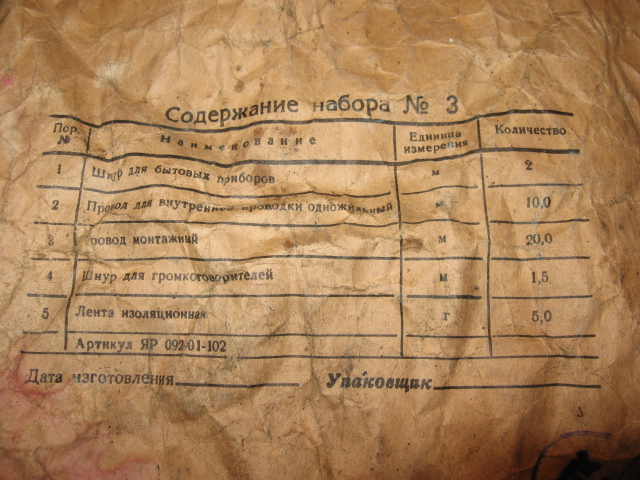 Содержание набора № 3
Пор. № Наименование Единица измерения Количество
1 Шнур для бытовых приборов м 2
2 Провод для внутренней проводки одножильный м 10,0
3 ровод монтажный м 20,0
4 Шнур для громкоговорителей м 1,5
5 Лента изоляционная г 5,0
Артикул ЯР 092-01-102
Дата изготовления Упаковщик